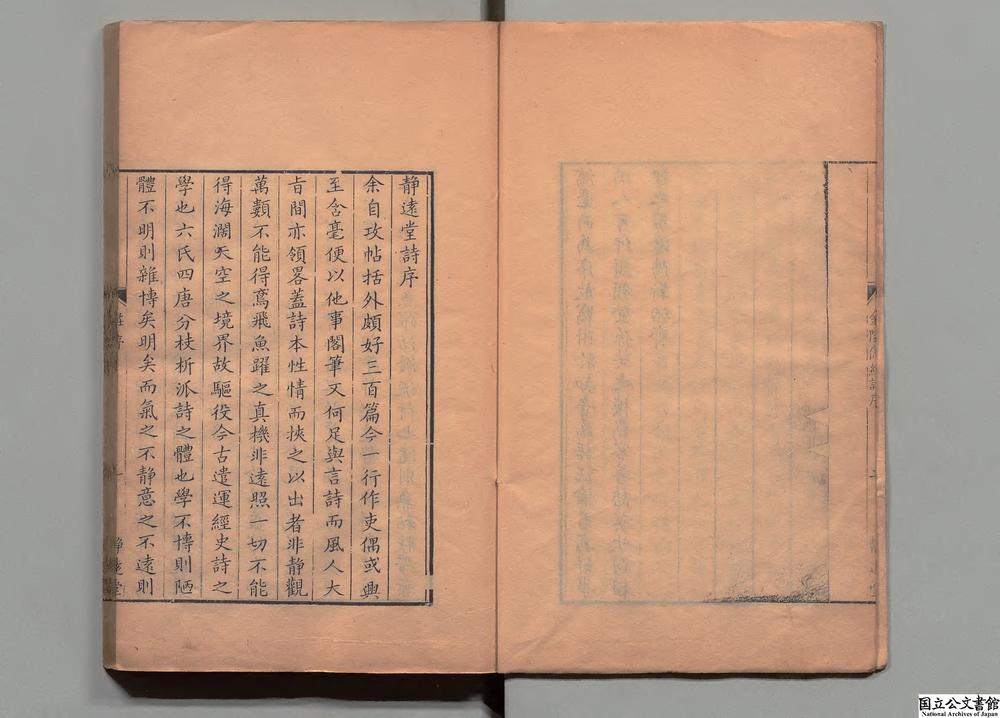 静遠堂詩序
余自攻帖括外頗好三百篇今一行作吏偶或興
至含毫便以他事閣筆又何足與言詩而風人大
旨間亦領畧蓋詩本性情而挾之以出者非静觀
萬類不能得鳶飛魚躍之真機非遠照一切不能
得海濶天空之境界故驅役今古遣運經史詩之
學也六氏四唐分枝析派詩之體也學不博則陋
體不明則雜博矣明矣而氣之不静意之不遠則
国立公文書館
National Archives of Japan